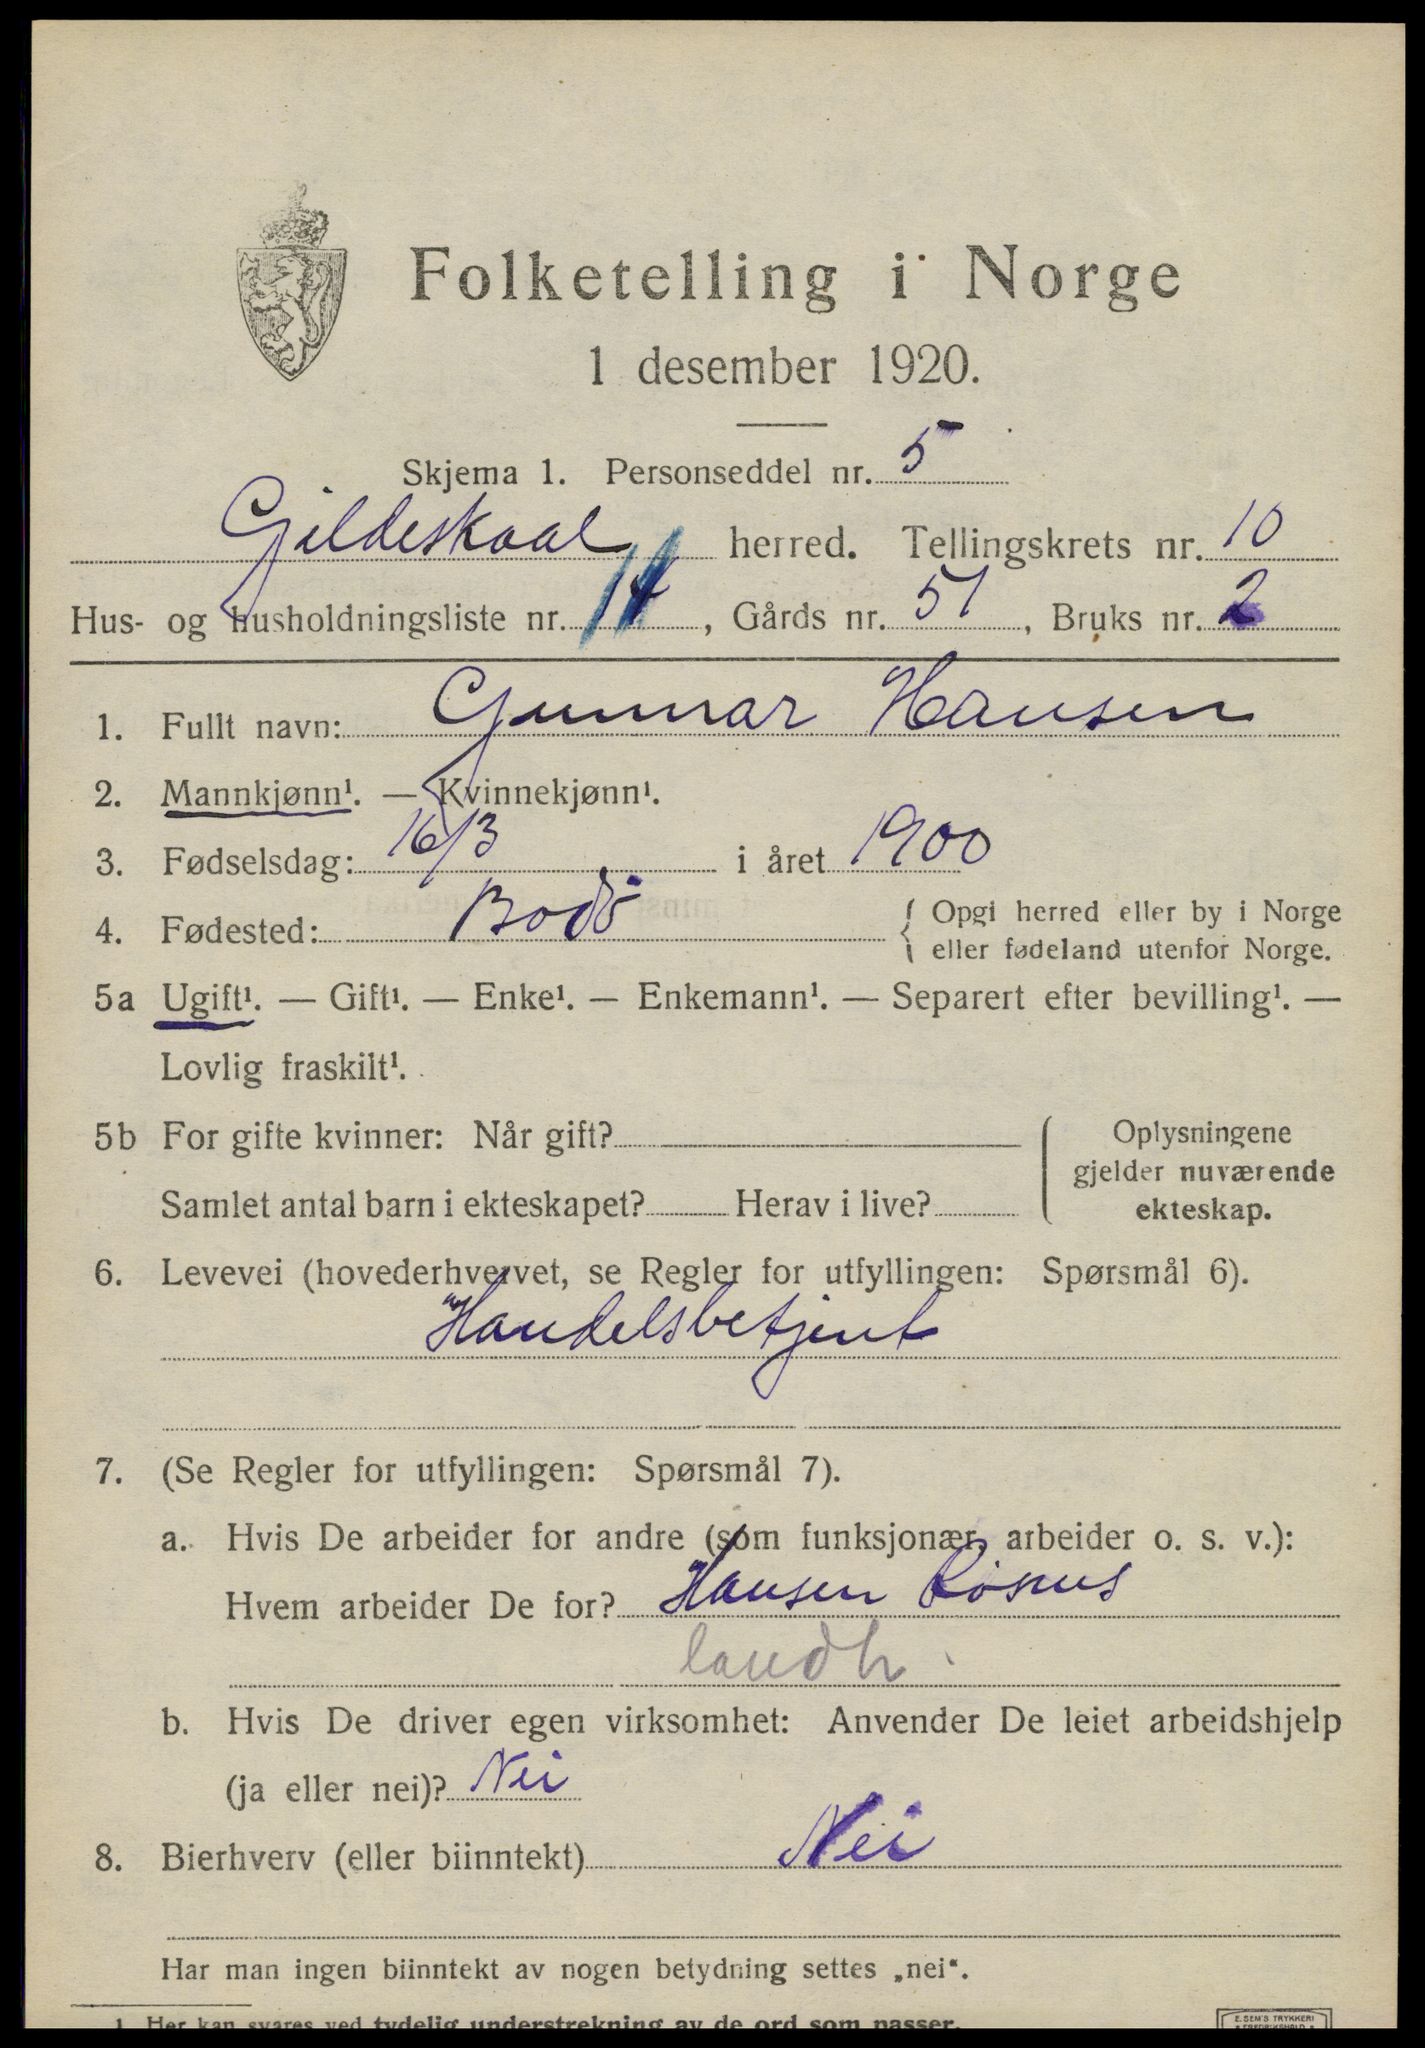 Folketelling i Norge
1 desember 1920.
Skjema 1. Personseddel nr. 5
Gildeskaal herred. Tellingskrets nr. 10
Hus- og husholdningsliste nr. , Gårds nr. 51, Bruks nr. 2
1. Fullt navn: Gunnar Hansen
2. Mannkjønn¹. — Kvinnekjønn¹.
3. Fødselsdag: 16/3 i året 1900
4. Fødested: Bodö { Opgi herred eller by i Norge
eller fødeland utenfor Norge.
5a Ugift¹. — Gift¹. — Enke¹. — Enkemann¹. — Separert efter bevilling¹. —
Lovlig fraskilt¹.
5b For gifte kvinner: Når gift?
Samlet antal barn i ekteskapet? Herav i live?
Oplysningene
gjelder nuværende
ekteskap.
6. Levevei (hovederhvervet, se Regler for utfyllingen: Spørsmål 6).
Handelsbetjent
7. (Se Regler for utfyllingen: Spørsmål 7).
a. Hvis De arbeider for andre (som funksjonær, arbeider o. s. v.):
Hvem arbeider De for? Hansen
landh.
b. Hvis De driver egen virksomhet: Anvender De leiet arbeidshjelp
(ja eller nei)? Nei
8. Bierhverv (eller biinntekt) Nei
Har man ingen biinntekt av nogen betydning settes „nei“.
1 Her kan svares ved tydelig understrekning av de ord som passer.
E. SEM'S TRYKKERI
FREDRIKSHALD